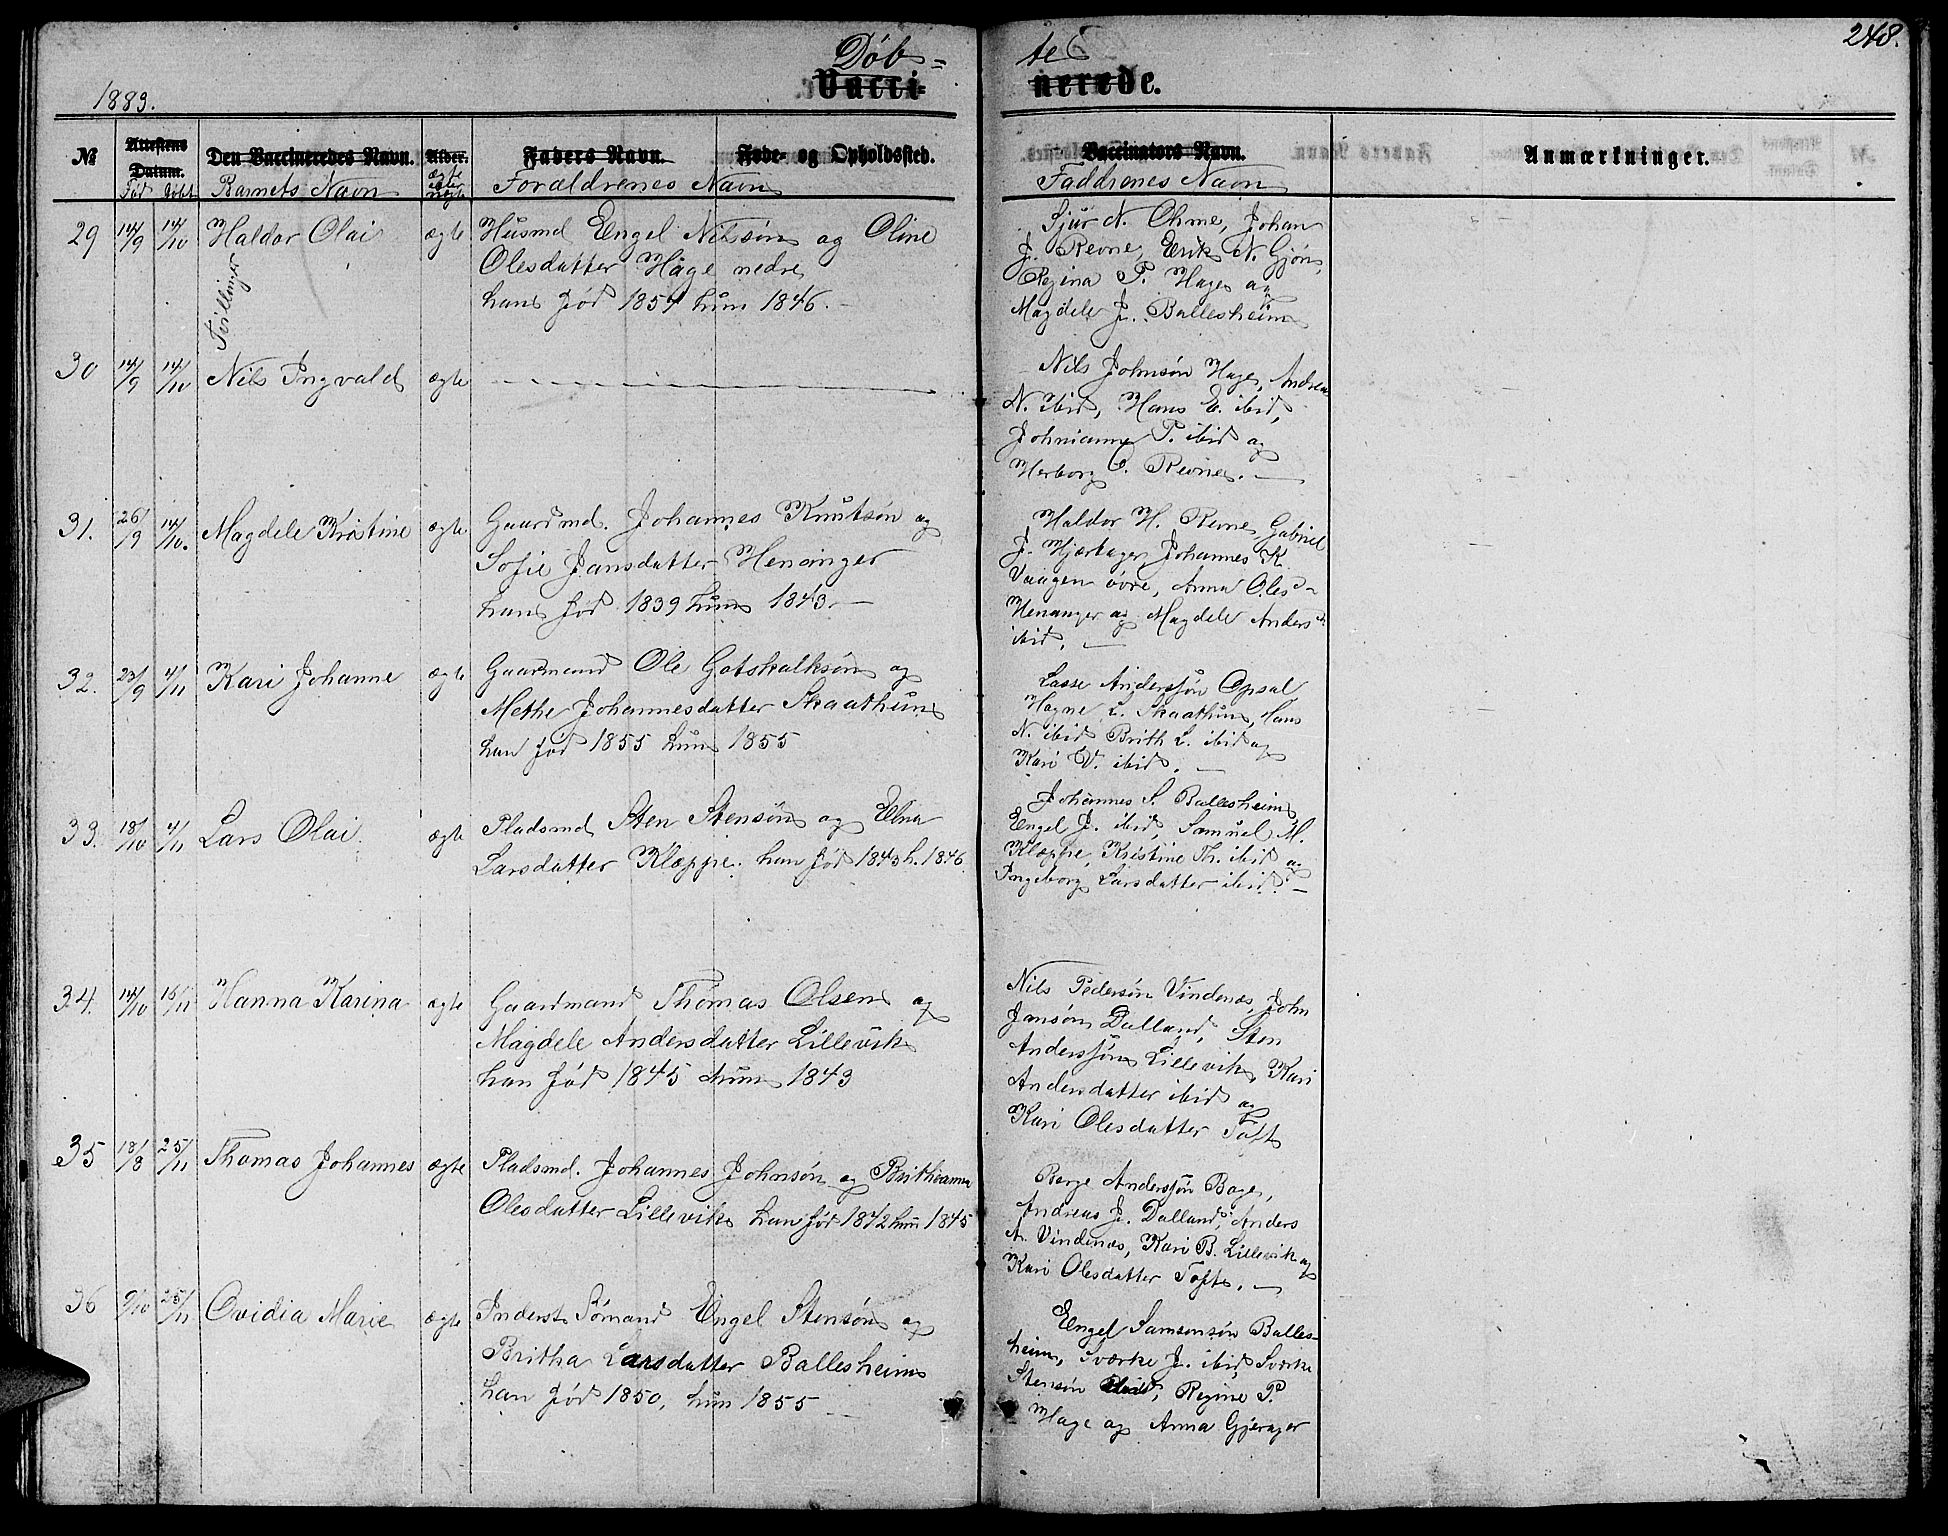 248.
Døb=
te
Vacci=
nerede.
1883.
№
Attestens Datum.
Den Vaccineredes Navn.
Alder.
Faders Navn.
Føde- og Opholdssted.
Vaccinators Navn.
Anmærkninger.
Fød
Døbt
Barnets Navn
ægte eller uægte
Forældrenes Navn
Faddrenes Navn
29 14/9 14/10 Haldor Olai ægte Husmd Engel Nilsøn og Oline
Olesdatter Hage nedre
han fød 1857 hun 1846.
Sjur N. Ohme, Johan
J. Revne, Erik N. Gjøn,
Regina P. Hage og
Magdele J. Ballesheim
Tvillinger
30 14/9 14/10 Nils Ingvald ægte
Nils Johnsøn Hage, Andreas
N. ibid, Hans E. ibid,
Johnianne P. ibid og
Herborg O. Revne. —
31. 26/9 14/10. Magdele Kristine ægte Gaardmd. Johannes Knutsøn og
Sofie Jansdatter Henanger
han fød 1839 hun 1843. —
Haldor H. Revne, Gabriel
J. Hjertager, Johannes K.
Vaagen øvre, Anna Oles d.
Henanger og Magdele Anders d.
ibid. —
32. 23/9 4/11 Kari Johanne ægte Gaardmand Ole Gotskalksøn og
Methe Johannesdatter Skaathun
han fød 1855 hun 1855
Lasse Andersføn Opsal
Hagne L. Skaathun, Hans
N. ibid Brith L. ibid og
Kari V. ibid. —
33. 18/10 4/11 Lars Olai. ægte Pladsmd Sten Stensøn og Elna
Larsdatter Kleppe. han fød 1843 h. 1846.
Johannes S. Ballesheim
Engel J. ibid, Samuel M.
Kleppe, Kristine Th. ibid og
Ingeborg Larsdatter ibid. —
34. 14/10 18/11 Hanna Karina ægte Gaardmand Thomas Olsen og
Magdele Andersdatter Lillevik
han fød 1845 hun 1843
Nils Pedersøn Vindenæs, John
Jansøn Dalland, Sten
Andersføn Lillevik, Kari
Andersdatter ibid og
Kari Olesdatter Toft
35 18/8 25/11 Thomas Johannes ægte Pladsmd. Johannes Johnsøn og Brithanna
Olesdatter Lillevik han fød 1842 hun 1845
Børge Andersføn Bage,
Andreas J. Dalland, Anders
A. Vindenæs, Kari B. Lillevik og
Kari Olesdatter Toft. —
36 9/10 25/11 Ovidia Marie ægte Inderst Sømand Engel Stensøn og
Britha Larsdatter Ballesheim
han fød 1850, hun 1855 —
Engel Samsonsøn Balles-
heim, Sværke J. ibid, Sværke
Stensøn ibid, Regine P.
Hage og Anna Gjerager